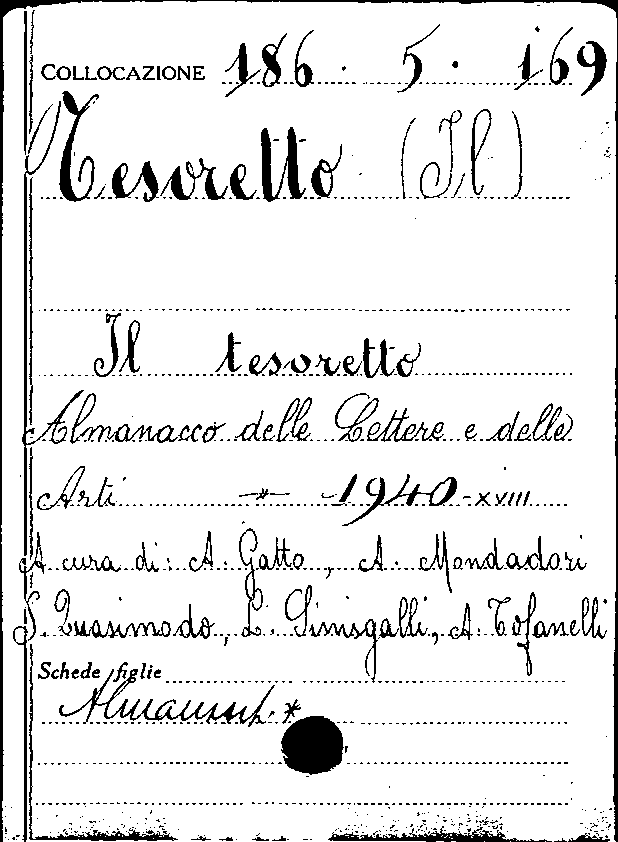 COLLOCAZIONE 186. 5. 169
Tesoretto (Il)
Il tesoretto
Almanacco delle Lettere e delle
Arti -"- -1940-XVIII
A cura di: A. Gatto, A. Mondadori
S. Quasimodo, L. Sinisgalli, A. Tofanelli
Schede figlie